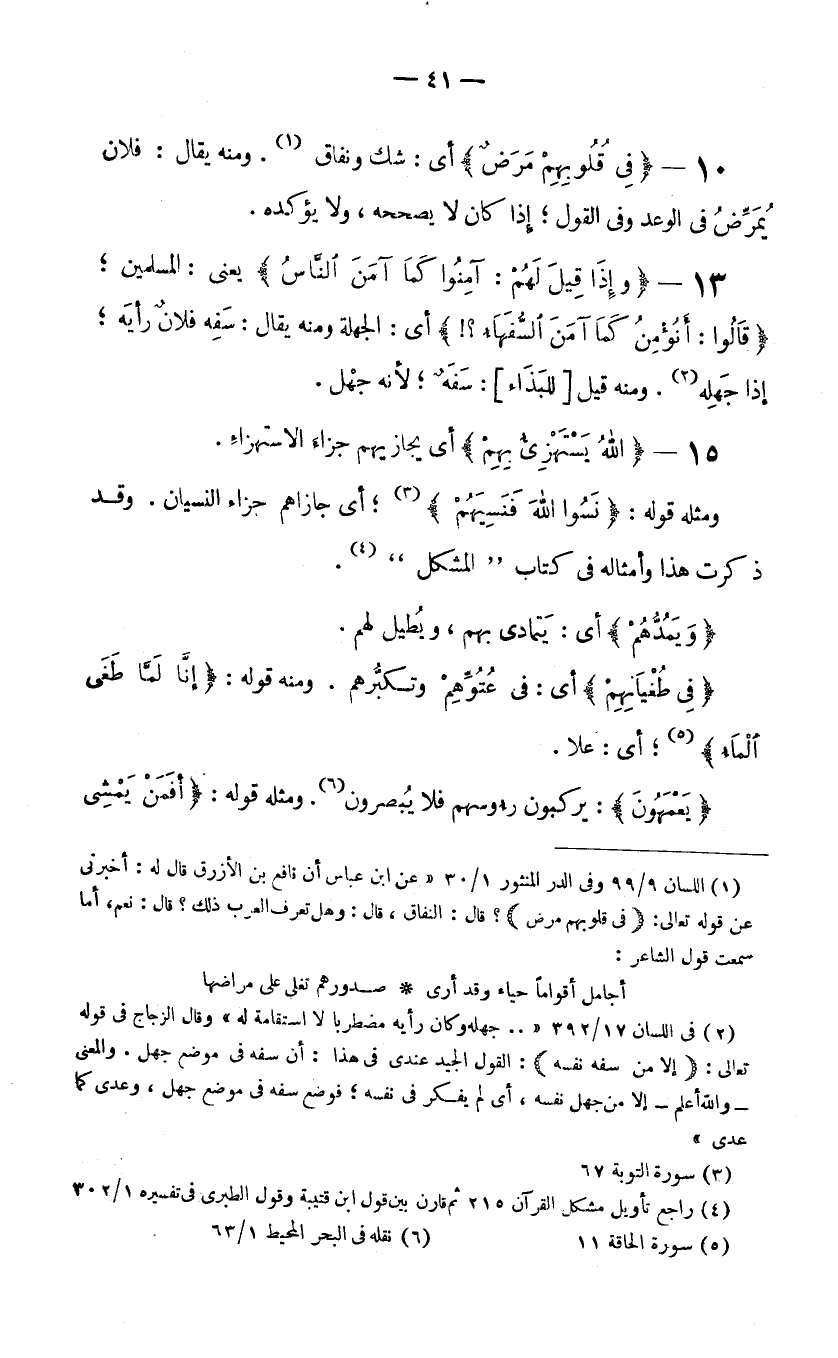 — ٤١ —
١٠ — ﴿ فِى قُلُوبِهِمْ مَرَضٌ ﴾ أى : شك ونفاق (١) . ومنه يقال : فلان
يُمَرِّضُ فى الوعد وفى القول ؛ إذا كان لا يصححه ، ولا يؤكده .
١٣ — ﴿ و إِذَا قِيلَ لَهُمْ : آمِنُوا كَمَا آمَنَ ٱلنَّاسُ ﴾ يعنى : المسلمين ؛
﴿ قَالُوا : أَنُؤْمِنُ كَمَا آمَنَ ٱلسُّفَهَاءُ ؟! ﴾ أى : الجهلة ومنه يقال : سَفِه فلانٌ رأيَه ؛
إذا جَهِله(٢) . ومنه قيل [ للبَذَاء ] : سَفَهٌ ؛ لأنه جهْل .
١٥ — ﴿ اللهُ يَسْتَهْزِئُ بِهِمْ ﴾ أى يجازيهم جزاءَ الاستهزاءِ .
ومثله قوله : ﴿ نَسُوا اللهَ فَنَسِيَهُمْ ﴾ (٣) ؛ أى جازاهم جزاء النسيان . وقد
ذكرت هذا وأمثاله فى كتاب ” المشكل “ (٤) .
﴿ وَيَمُدُّهُمْ ﴾ أى : يَتمادى بهم ، ويُطيل لهم .
﴿ فِى طُغْيَانِهِمْ ﴾ أى : فى عُتُوِّهِمْ وتكبُّرهم . ومنه قوله : ﴿ إِنَّا لَمَّا طَغَى
ٱلْمَاءُ ﴾ (٥) ؛ أى : علا .
﴿ يَعْمَهُونَ ﴾ : يركبون رءوسهم فلا يُبصرون(٦) . ومثله قوله : ﴿ أَفَمَنْ يَمْشِى
(١) اللسان ٩/٩٩ وفى الدر المنثور ١/٣٠ « عن ابن عباس أن نافع بن الأزرق قال له : أخبرنى
عن قوله تعالى: ﴿ فى قلوبهم مرض ﴾ ؟ قال : النفاق ، قال : وهل تعرف العرب ذلك ؟ قال : نعم، أما
سمعت قول الشاعر :
أجامل أقواماً حياء وقد أرى * صدورهم تغلى على مراضها
(٢) فى اللسان ١٧/٣٩٢ « .. جهله وكان رأيه مضطربا لا استقامة له » وقال الزجاج فى قوله
تعالى : ﴿ إلا من سفه نفسه ﴾ : القول الجيد عندى فى هذا : أن سفه فى موضع جهل . والمعنى
ــ والله أعلم ــ إلا من جهل نفسه ، أى لم يفكر فى نفسه ؛ فوضع سفه فى موضع جهل ، وعدى كما
عدى »
(٣) سورة التوبة ٦٧
(٤) راجع تأويل مشكل القرآن ٢١٥ ثم قارن بين قول ابن قتيبة وقول الطبرى فى تفسيره ١/٣٠٢
(٥) سورة الحاقة ١١ (٦) نقله فى البحر المحيط ١/٦٣